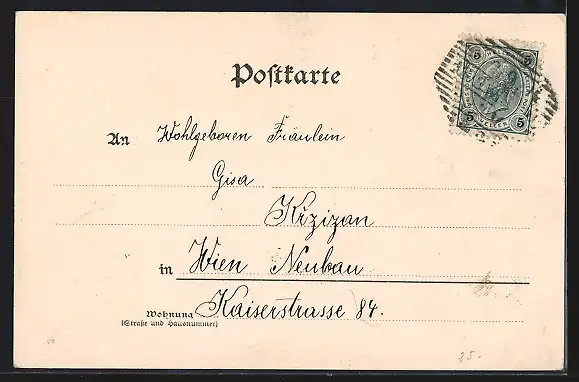 Postkarte
5 5
5 HELLER 5
An Wohlgeboren Fräulein
Gisa
Krzizan
in Wien Neubau
Wohnung Kaiserstrasse 84.
(Straße und Hausnummer)
25.-